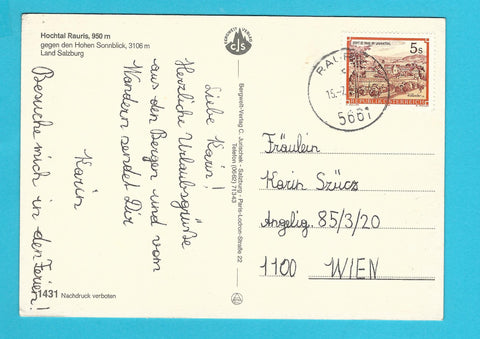 Hochtal Rauris, 950 m
gegen den Hohen Sonnblick, 3106 m
Land Salzburg
Liebe Karin!
Herzliche Urlaubsgrüße
aus den Bergen und vom
Wandern sendet Dir
Karin
Besuche mich in den Ferien!
1431 Nachdruck verboten
BERGWELT VERLAG
CJS
Bergwelt-Verlag C. Jurischek - Salzburg - Paris-Lodron-Straße 22
Telefon (0662) 71343
5s
REPUBLIK ÖSTERREICH
5661
Fräulein
Karin Szücz
Angelig. 85/3/20
1100 WIEN